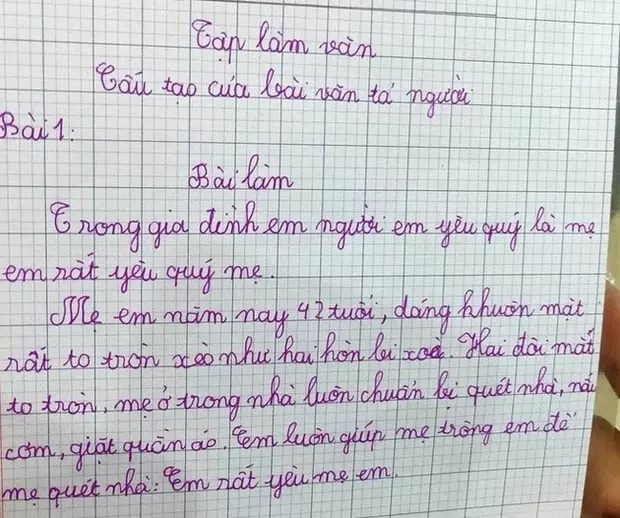 Tập làm văn
Cấu tạo của bài văn tả người
Bài 1:
Bài làm
Trong gia đình em người em yêu quý là mẹ
em rất yêu quý mẹ.
Mẹ em năm nay 42 tuổi, dáng khuôn mặt
rất to tròn xoe như hai hòn bi xoà. Hai đôi mắt
to tròn, mẹ ở trong nhà luôn chuẩn bị quét nhà, nấu
cơm, giặt quần áo. Em luôn giúp mẹ trông em để
mẹ quét nhà: Em rất yêu mẹ em.